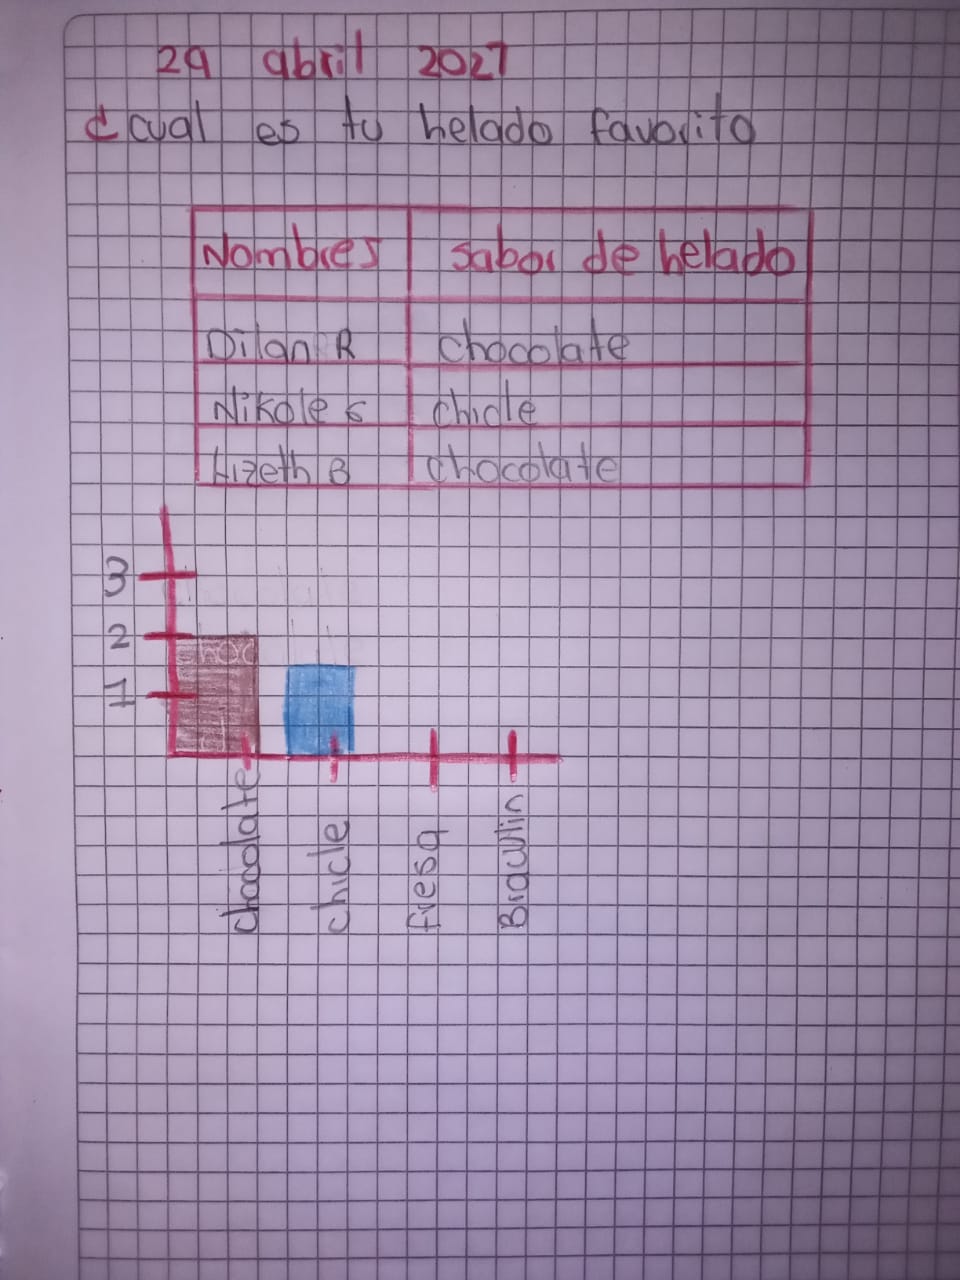 29 abril 2021
¿cual es tu helado favorito
Nombres sabor de helado
Dilan R chocolate
Nikole G chicle
Lizeth B chocolate
3
2
1
chocolate
chicle
fresa